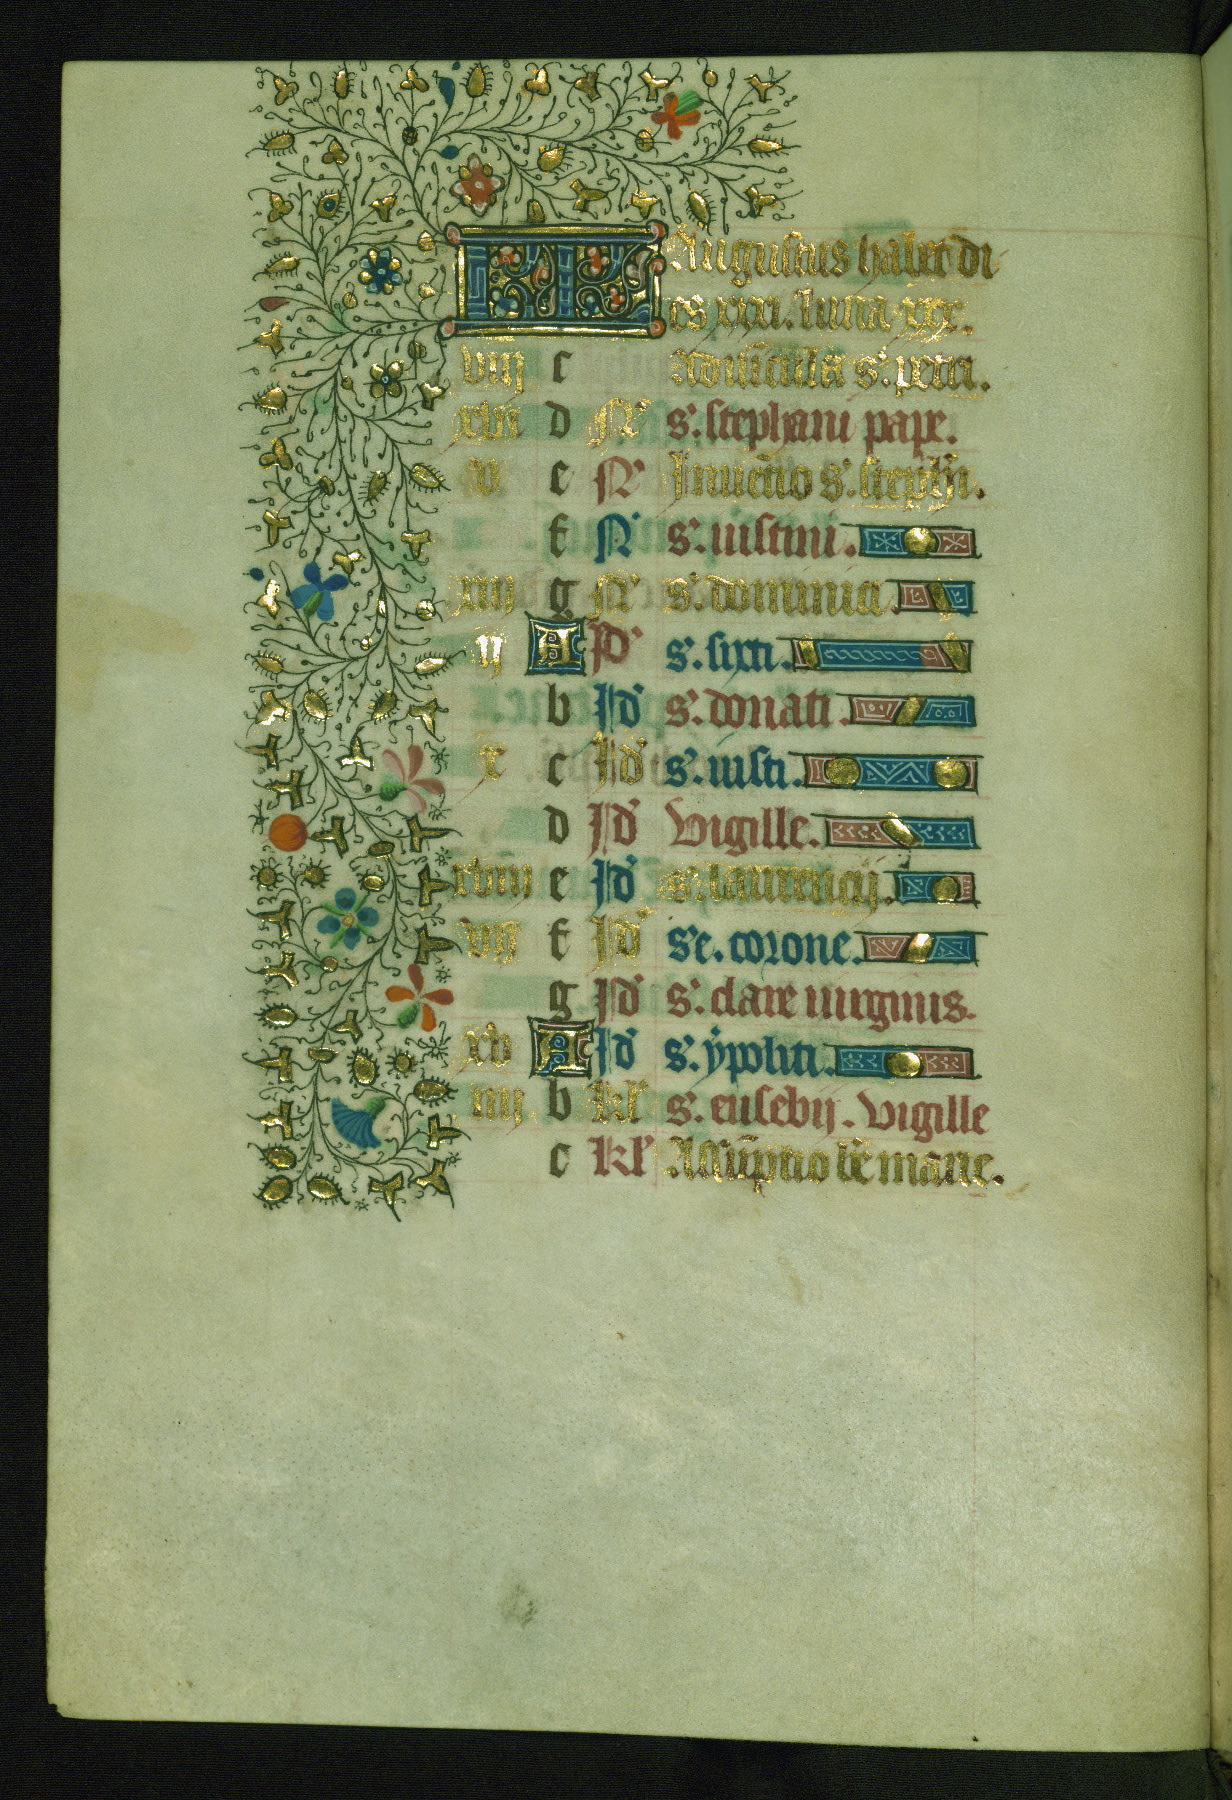 KL Augustus habet di
es xxxi. luna xxx.
viii c Aduincula s'. petri.
xvi d N' s'. stephani pape.
v e N' Inuentio s'. steph'i.
f N' s'. iustini.
xiii g N' s'. dominici.
ii A Id' s'. sixti.
b Id' s'. donati
x c Id' s'. iusti.
d Id' Vigille.
xviii e Id' s'. laurencij.
vii f Id' s'e. corone.
g Id' s'. clare uirginis.
xv A Id' s'. ypoliti.
iiii b kl' s'. eusebij. Vigille
c kl' Assu'ptio b'e marie.